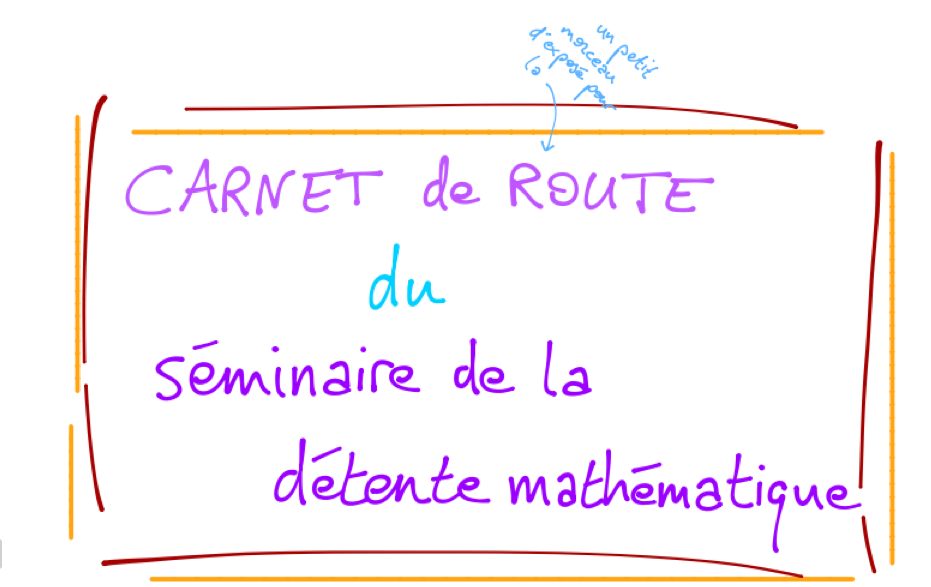 un petit
morceau
d'exposé pour
CARNET de ROUTE
du
séminaire de la
détente mathématique